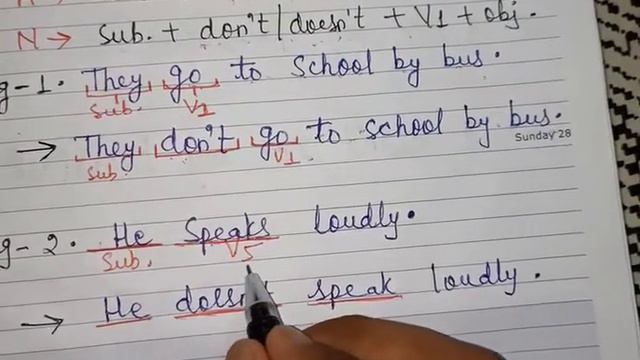 N → Sub. + don't / doesn't + V1 + obj.
g-1. They go to School by bus.
Sub. V1
→ They don't go to school by bus.
Sub V1. Sunday 28
g-2. He Speaks loudly.
Sub. V5
→ He doesn't speak loudly.